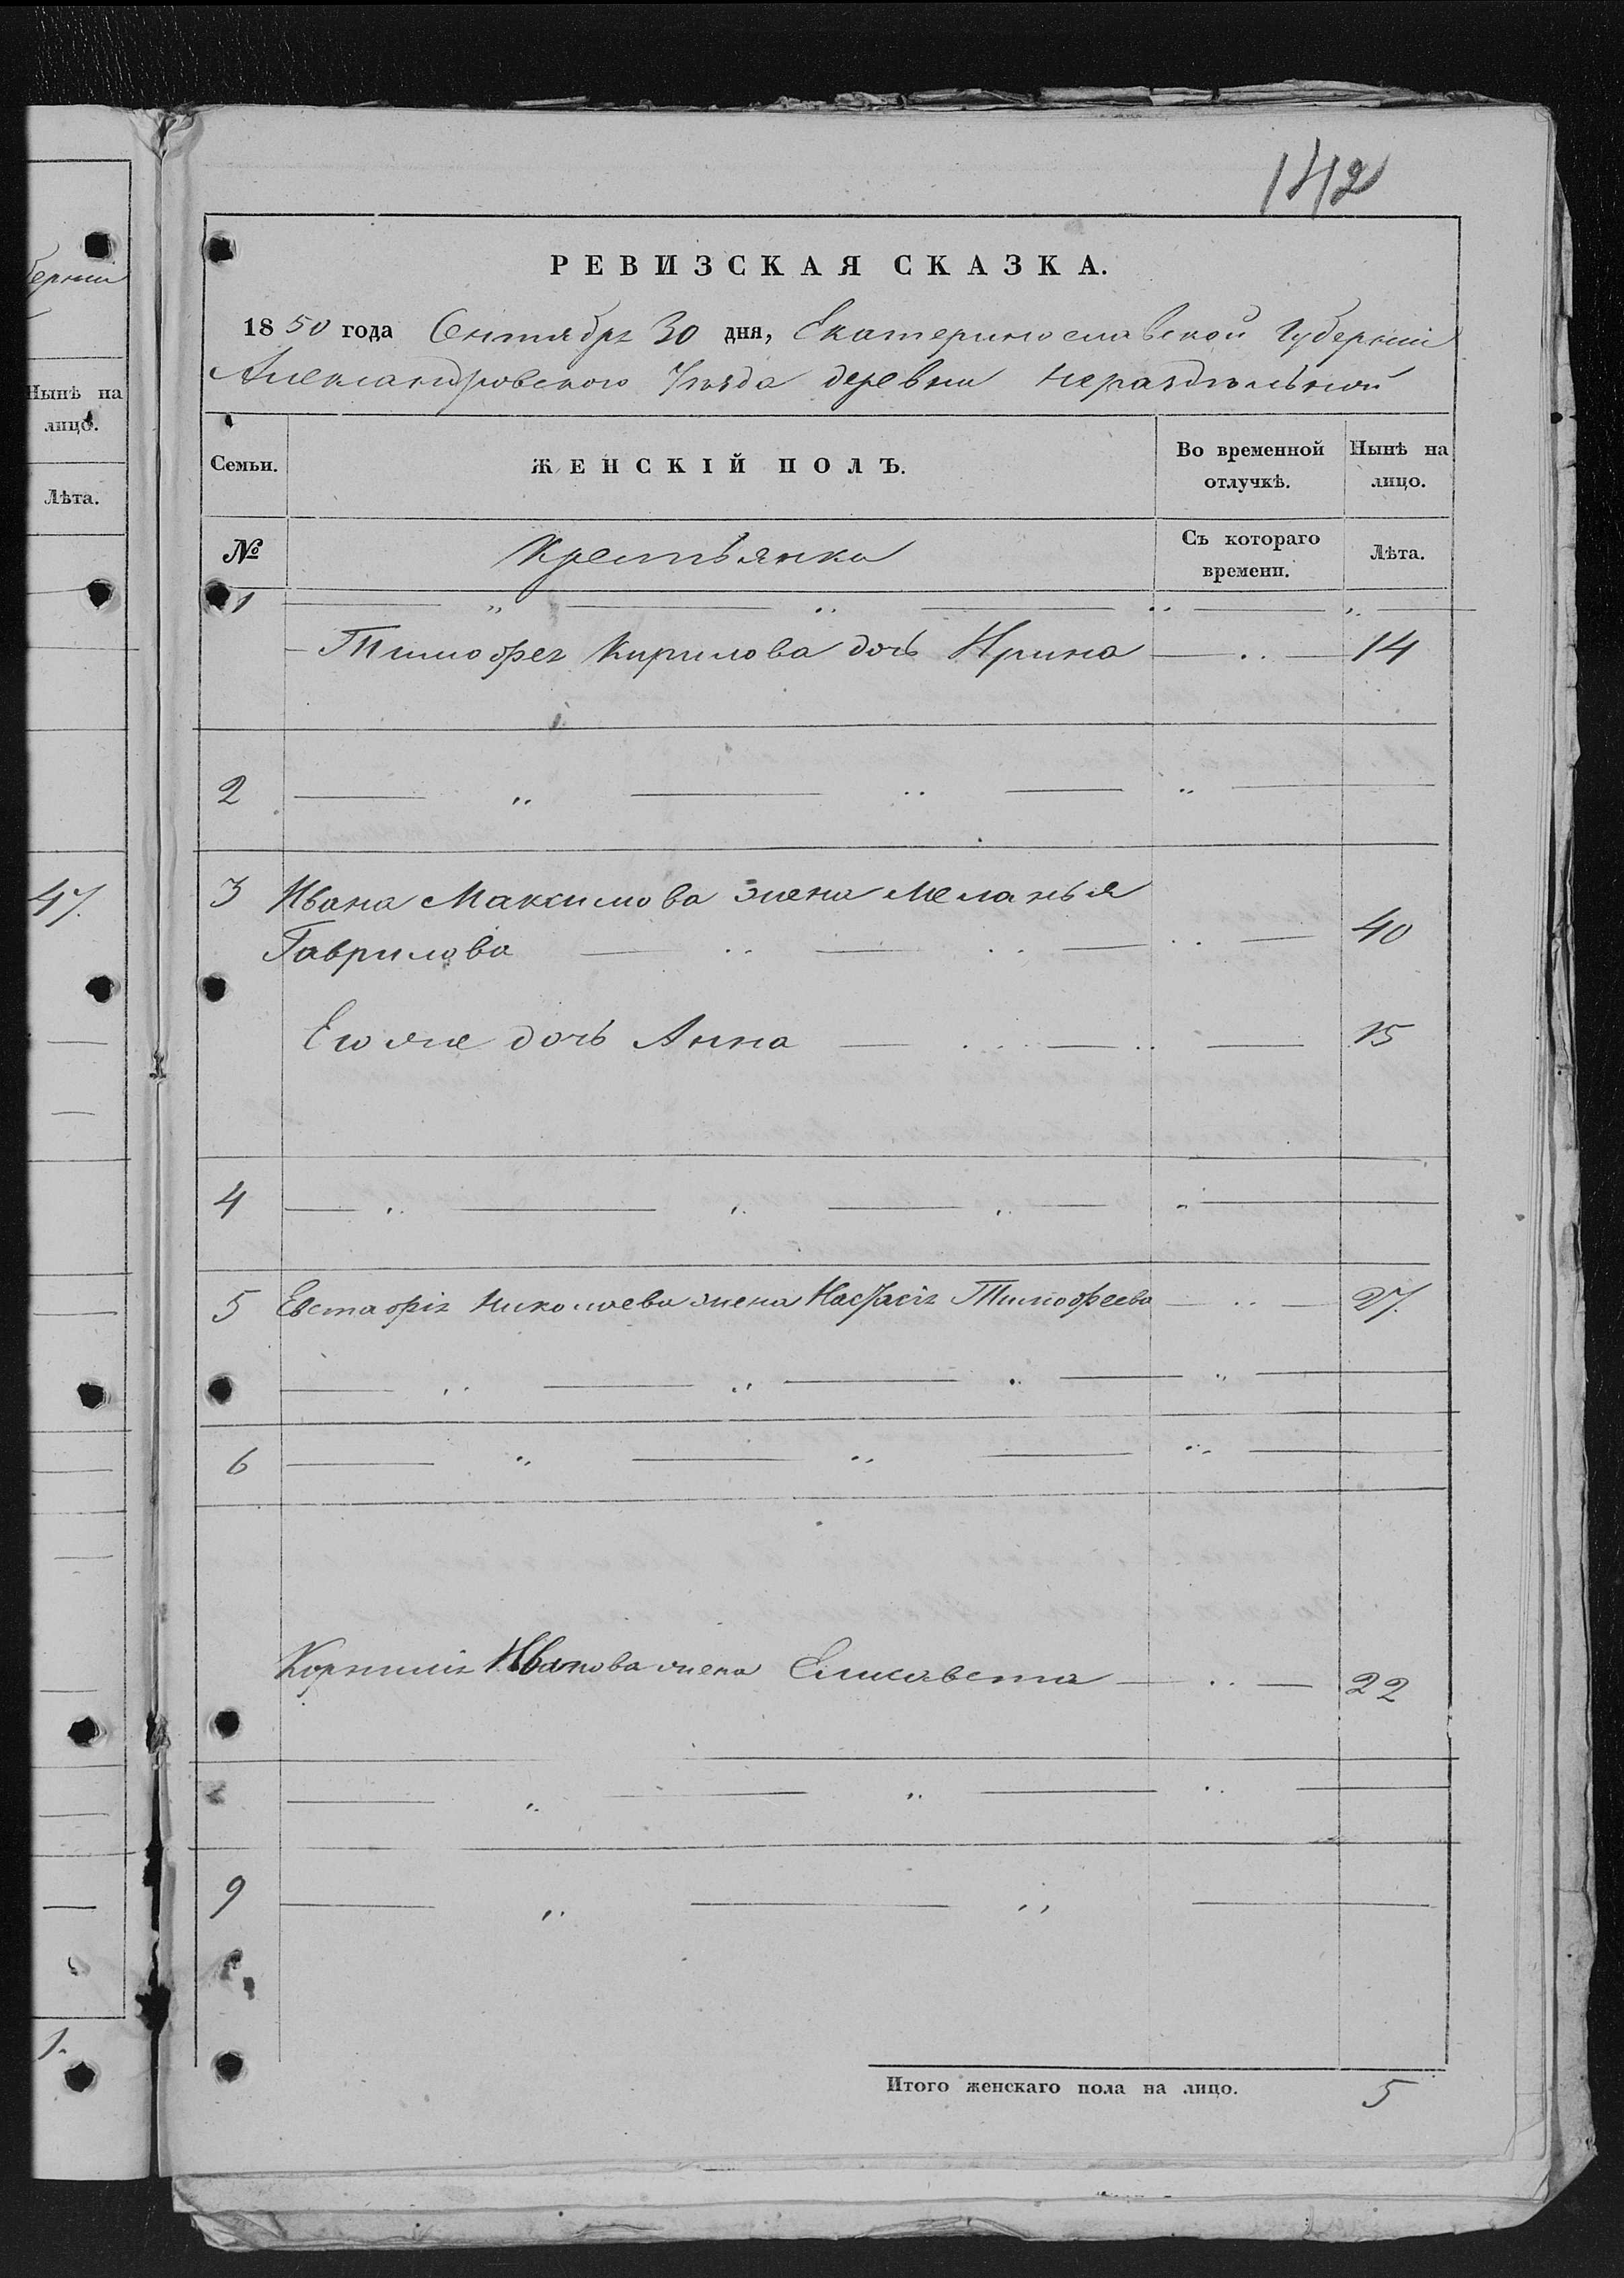 берніи
Нынѣ на
лицо.
Лѣта.
47.
1.
142
РЕВИЗСКАЯ СКАЗКА.
1850 года Сентября 30 дня, Екатеринославской Губерніи
Александровского Уѣзда деревни Нераздѣльной
Семьи. ЖЕНСКІЙ ПОЛЪ. Во временной отлучкѣ. Нынѣ на лицо.
№ Крестьянки Съ котораго времени. Лѣта.
1
Тимофея Кирилова дочь Ирина 14
2
3 Ивана Максимова жена Меланья
Гаврилова 40
Его же дочь Анна 15
4
5 Евстафія Николаева жена Настасія Тимофеева 27.
6
Корнилія Иванова жена Елисавета 22
9
Итого женскаго пола на лицо. 5